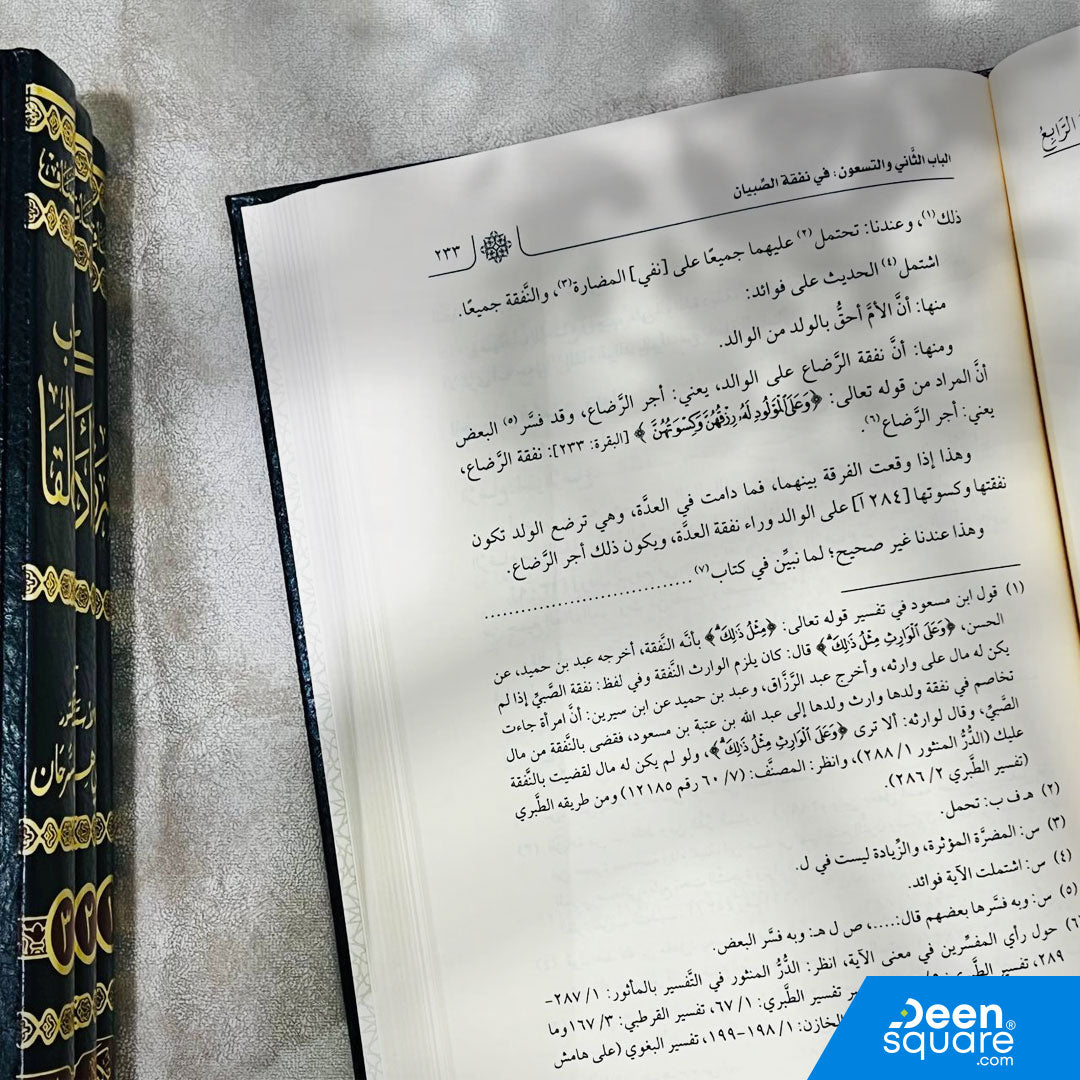 الباب الثَّاني والتسعون: في نفقة الصِّبيان
٢٣٣
ذلك(١)، وعندنا: تحتمل(٢) عليهما جميعًا على [نفي] المضارة(٣)، والنَّفقة جميعًا.
اشتمل(٤) الحديث على فوائد:
منها: أنَّ الأمَّ أحقُّ بالولد من الوالد.
ومنها: أنَّ نفقة الرَّضاع على الوالد، يعني: أجر الرَّضاع، وقد فسَّر(٥) البعض
أنَّ المراد من قوله تعالى: ﴿وَعَلَى الْمَوْلُودِ لَهُ رِزْقُهُنَّ وَكِسْوَتُهُنَّ﴾ [البقرة: ٢٣٣]: نفقة الرَّضاع،
يعني: أجر الرَّضاع(٦).
وهذا إذا وقعت الفرقة بينهما، فما دامت في العدَّة، وهي ترضع الولد تكون
نفقتها وكسوتها [٢٨٤ آ] على الوالد وراء نفقة العدَّة، ويكون ذلك أجر الرَّضاع.
وهذا عندنا غير صحيح؛ لما نبيِّن في كتاب(٧)...............................
(١) قول ابن مسعود في تفسير قوله تعالى: ﴿مِثْلُ ذَلِكَ﴾ بأنَّه النَّفقة، أخرجه عبد بن حميد، عن
الحسن، ﴿وَعَلَى الْوَارِثِ مِثْلُ ذَلِكَ﴾ قال: كان يلزم الوارث النَّفقة وفي لفظ: نفقة الصَّبيِّ إذا لم
يكن له مال على وارثه، وأخرج عبد الرَّزَّاق، وعبد بن حميد عن ابن سيرين: أنَّ امرأة جاءت
تخاصم في نفقة ولدها وارث ولدها إلى عبد الله بن عتبة بن مسعود، فقضى بالنَّفقة من مال
الصَّبيِّ، وقال لوارثه: ألا ترى ﴿وَعَلَى الْوَارِثِ مِثْلُ ذَلِكَ﴾، ولو لم يكن له مال لقضيت بالنَّفقة
عليك (الدُّرُّ المنثور ١/ ٢٨٨)، وانظر: المصنَّف: (٧/ ٦٠ رقم ١٢١٨٥) ومن طريقه الطَّبري
(تفسير الطَّبري ٢/ ٢٨٦).
(٢) هـ ف ب: تحمل.
(٣) س: المضرَّة المؤثرة، والزِّيادة ليست في ل.
(٤) س: اشتملت الآية فوائد.
(٥) س: وبه فسَّرها بعضهم قال:....، ص ل هـ: وبه فسَّر البعض.
(٦) حول رأي المفسِّرين في معنى الآية، انظر: الدُّرُّ المنثور في التَّفسير بالمأثور: ١/ ٢٨٧-
٢٨٩، تفسير الطَّبري: تفسير الطَّبري: ١/ ٦٧، تفسير القرطبي: ٣/ ١٦٧ وما
الخازن: ١/ ١٩٨-١٩٩، تفسير البغوي (على هامش
الرَّابع
سرحان
٣
٢
Deen
square®
.com